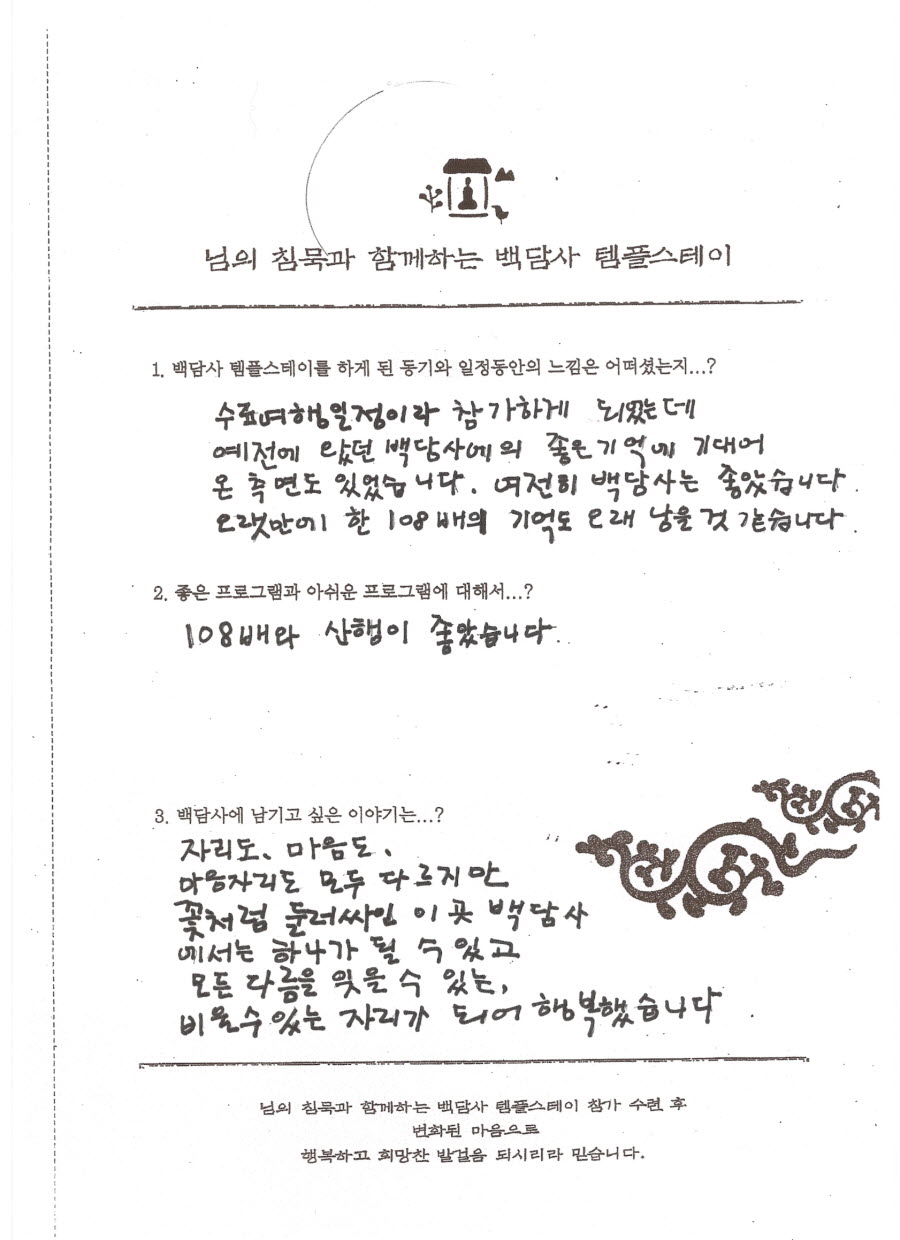 님의 침묵과 함께하는 백담사 템플스테이
1. 백담사 템플스테이를 하게 된 동기와 일정동안의 느낌은 어떠셨는지...?
수료여행일정이라 참가하게 되었는데
예전에 왔던 백담사에의 좋은기억에 기대어
온 측면도 있었습니다. 여전히 백담사는 좋았습니다.
오랫만에 한 108배의 기억도 오래 남을것 같습니다.
2. 좋은 프로그램과 아쉬운 프로그램에 대해서...?
108배와 산행이 좋았습니다.
3. 백담사에 남기고 싶은 이야기는...?
자리도、마음도、
마음자리도 모두 다르지만
꽃처럼 둘러싸인 이 곳 백담사
에서는 하나가 될 수 있고
모든 다름을 잊을 수 있는,
비울수 있는 자리가 되어 행복했습니다.
님의 침묵과 함께하는 백담사 템플스테이 참가 수련 후
변화된 마음으로
행복하고 희망찬 발걸음 되시리라 믿습니다.